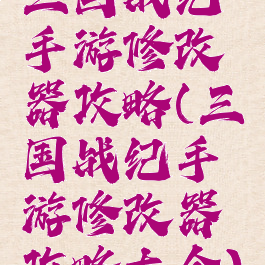 三国战纪
手游修改
器攻略(三
国战纪手
游修改器
攻略大全)